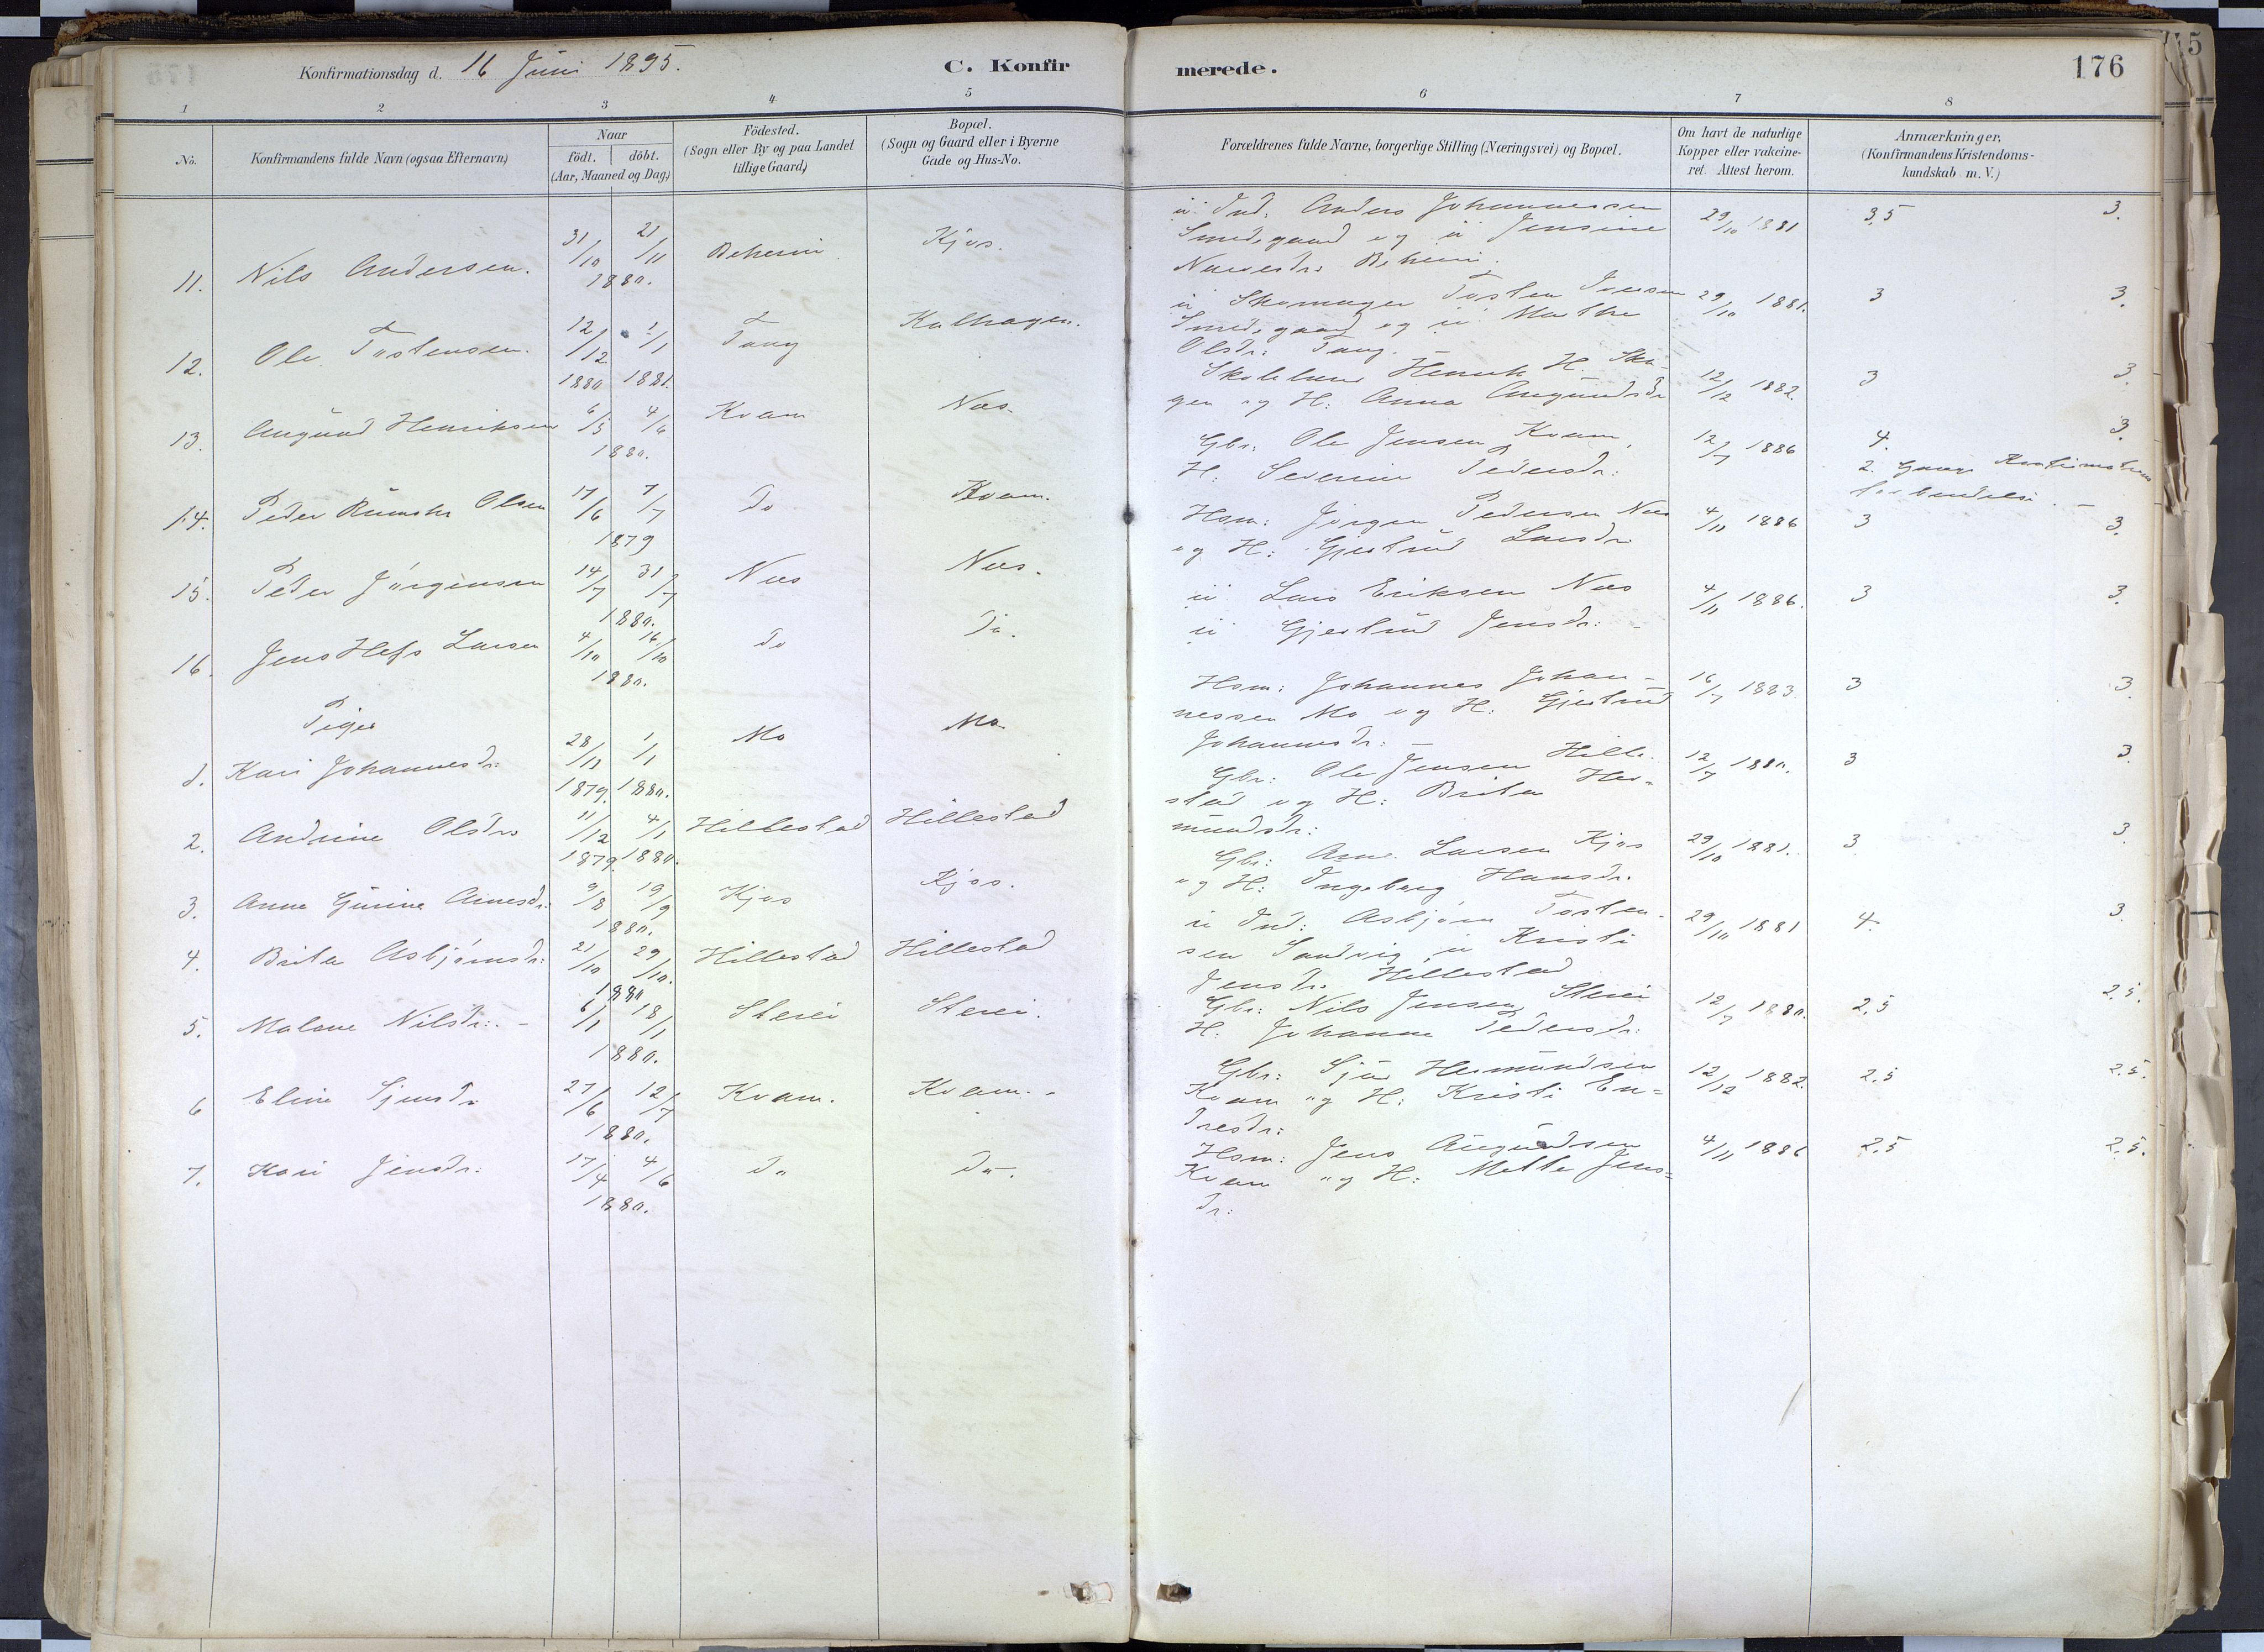 Konfirmationsdag d. 16 Juni 1895.
C. Konfirmerede.
176
1 2 3 4 5 6 7 8
No.
Konfirmandens fulde Navn (ogsaa Efternavn)
Naar
födt. döbt.
(Aar, Maaned og Dag)
Födested.
(Sogn eller By og paa Landet
tillige Gaard)
Bopæl.
(Sogn og Gaard eller i Byerne
Gade og Hus-No.
Forældrenes fulde Navne, borgerlige Stilling (Næringsvei) og Bopæl.
Om havt de naturlige
Kopper eller vakcine-
ret. Attest herom.
Anmærkninger,
(Konfirmandens Kristendoms-
kundskab m. V.)
11. Nils Andersen. 31/10 21/11 1880. Kjos.
Anders Johannessen
Smedegaard og Jensine
29/10 1881 3,5 3.
12. Ole Tostensen. 12/12 1880 1/1 1881. Tang
Skomager Tosten Iversen
Smedegaard og Marthe
Olsdr: Tang.
29/10 1881. 3 3.
13. Augund Henriksen 6/5 4/6 1880. Kvam Næs.
Henrik H. Ska-
gen og H: Anna Augundsdr
12/12 1882. 3 3.
14. Peder Olsen 17/6 7/7 1879 Do Kvam.
Gbr: Ole Jensen Kvam,
H: Severine Pedersdr:
12/7 1886 4. 3.
2. Gang
15. Peder Jörgensen 14/7 31/7 1880. Næs Næs.
Hsm: Jörgen Pedersen Næs
og H: Gjertrud Larsdr:
4/11 1886 3 3.
16. Jens Larsen 4/10 16/10 1880. do Do.
Lars Eriksen Næs
Gjertrud Jensdr:
4/11 1886. 3 3.
Piger
1. Kari Johannesdr: 28/11 1879. 1/1 1880. Mo Mo
Hsm: Johannes Johan-
nessen Mo og H: Gjertrud
Johannesdr:
16/7 1883 3 3.
2. Andrine Olsdr: 11/12 1879. 4/1 1880. Hillestad Hillestad
Gbr: Ole Jensen Hille-
stad og H: Brita Her-
mundsdr:
12/7 1880. 3 3.
3. Anne Gurine Arnesdr: 9/8 19/9 1880. Kjos Kjos.
Gbr: Arne Larsen Kjos
og H: Ingeborg Hansdr.
29/10 1881. 3 3.
4. Brita Asbjörnsdr: 21/10 29/10. 1880 Hillestad Hillestad
Asbjörn Tosten-
sen Sandvig Kristi
Jensdr. Hillestad
29/10 1881 4. 3.
5. Malene Nilsdr: 6/1 18/1 1880.
Gbr: Nils Jensen
H: Johanne Pedersdr:
12/7 1880. 2,5 2,5.
6 Eline Sjursdr 27/6 12/7 1880. Kvam. Kvam.
Gbr: Sjur Hermundsen
Kvam og H: Kristi En-
dresdr:
12/12 1882. 2,5 2,5.
7. Kari Jensdr: 17/4 4/6 1880. do do.
Hsm: Jens Augundsen
Kvam og H: Mette Jens-
dr:
4/11 1886 2,5 2,5.